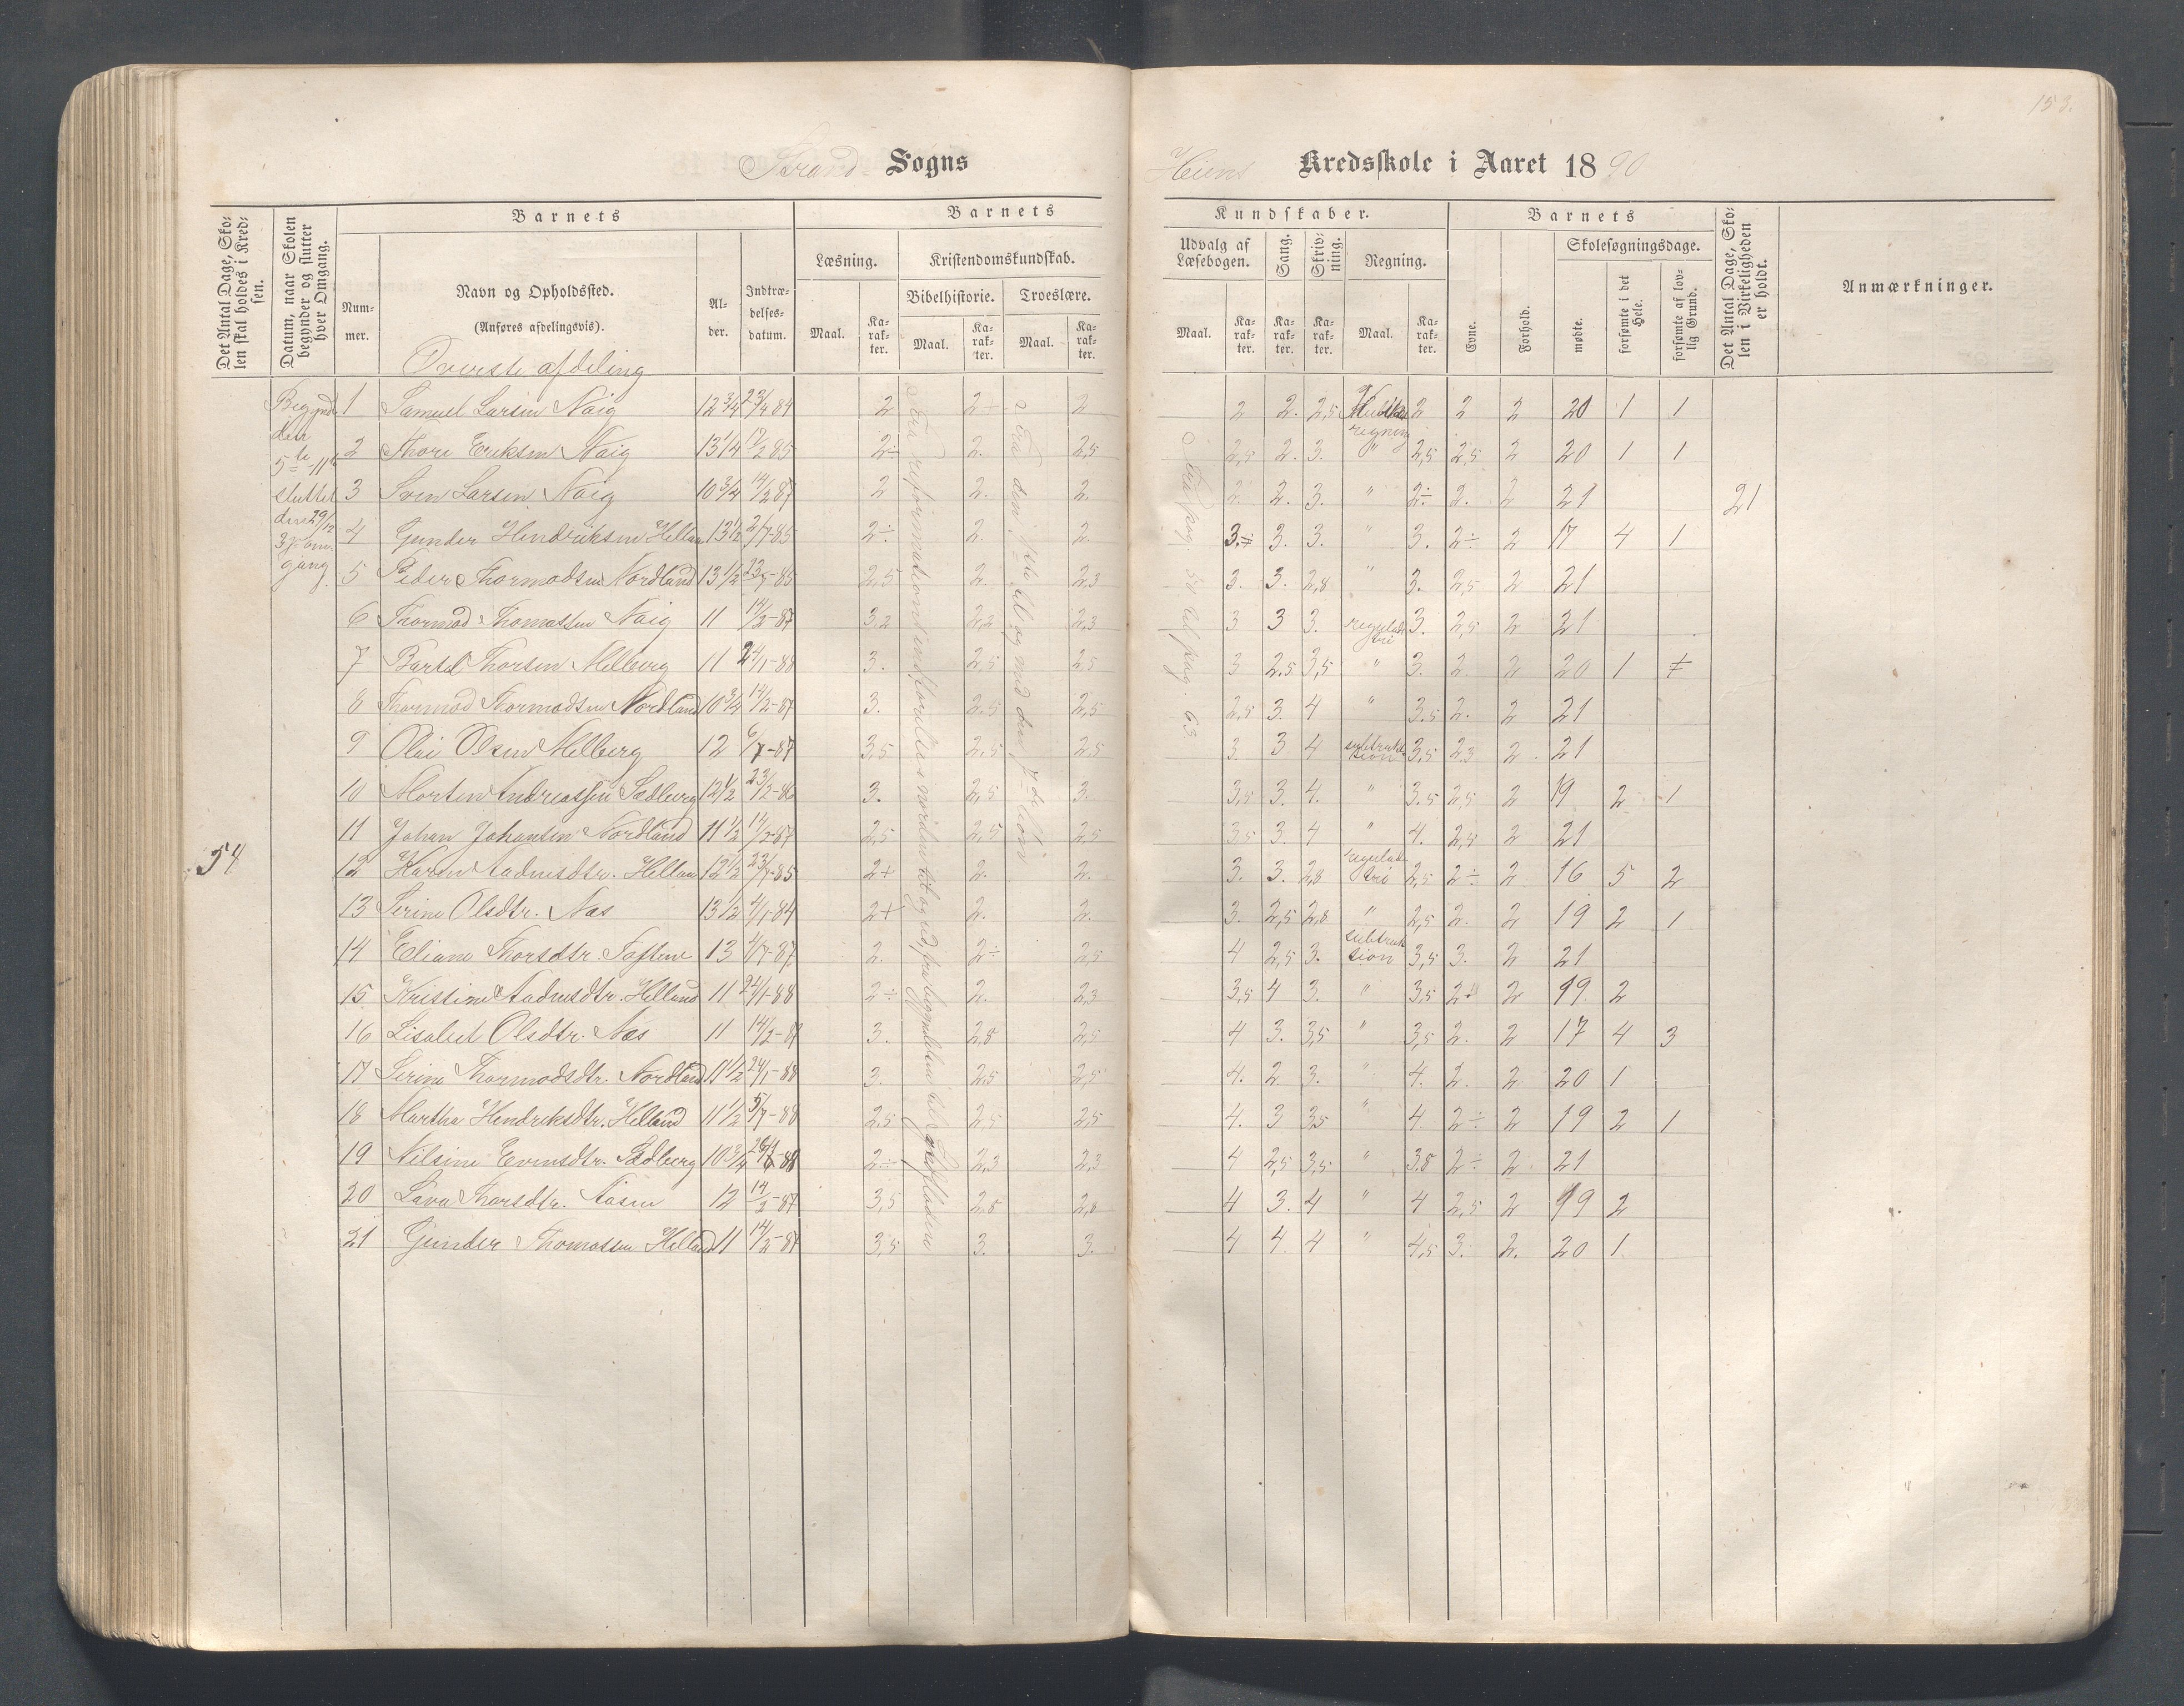 153.
Strand Sogns
Heiens Kredsskole i Aaret 1890
Det Antal Dage, Skolen skal holdes i Kredsen.
Datum, naar Skolen begynder og slutter hver Omgang.
Barnets
Nummer.
Navn og Opholdssted.
(Anføres afdelingsvis).
Alder.
Indtrædelsesdatum.
Barnets
Læsning.
Kristendomskundskab.
Bibelhistorie.
Troeslære.
Maal.
Karakter.
Maal.
Karakter.
Maal.
Karakter.
Kundskaber.
Udvalg af Læsebogen.
Sang.
Skrivning.
Regning.
Maal.
Karakter.
Karakter.
Karakter.
Maal.
Karakter.
Barnets
Evne.
Forhold.
Skolesøgningsdage.
mødte.
forsømte i det Hele.
forsømte af lovlig Grund.
Det Antal Dage, Skolen i Virkeligheden er holdt.
Anmærkninger.
Øverste afdeling
Begyndt
den
5te 11
sluttet
den 29/12
3die om-
gang.
54
21
1 Samuel Larsen Naig 12 3/4 23/4 84 2 2÷ 2 2 2. 2,5 2 2 2 20 1 1
2 Thore Eriksen Naig 13 1/4 17/2 85 2÷ 2. 2,5 2,5 2. 3. regning " 2,5 2,5 2 20 1 1
3 Sven Larsen Naig 10 3/4 14/2 87 2 2. 2. 2. 2. 3. " 2÷ 2. 2 21
4 Gunder Hendriksen Hellan 13 1/2 2/7-85 2÷ 2. 2. 3.÷ 3. 3. " 3. 2÷ 2 17 4 1
5 Peder Thormodsen Nordland 13 1/2 23/7-85 2,5 2. 2,3 3. 3. 2,8 " 3. 2,5 2 21
6 Thormod Thomassen Naig 11 14/2-87 3,2 2,2 2,3 3 3 3. reguladetri 3. 2,5 2 21
7 Bartel Thorsen Melberg 11 24/1-88 3. 2,5 2,5 3 2,5 3,5 " 3. 2. 2 20 1
8 Thormod Thormodsen Nordland 10 3/4 14/2-87 3. 2,5 2,5 2,5 3. 4 " 3,5 2. 2 21
9 Olai Olsen Melberg 12 6/7-87 3,5 2,5 2,5 3. 3 4 subtraktion 3,5 2,3 2. 21
10 Morten Andreassen Sedberg 12 1/2 23/2-86 3. 2,5 3. 3,5 3. 4. " 3,5 2,5 2 19 2 1
11 Johan Johansen Nordland 11 1/2 14/2-87 2,5 2,5 2,5 3,5 3. 4 " 4. 2,5 2 21
12 Karen Aadnesdtr. Hellan 12 1/2 23/7-85 2+ 2. 2. 3. 3. 2,8 reguladetri 2,5 2÷ 2 16 5 2
13 Serine Olsdtr. Næs 13 1/2 4/1-84 2+ 2. 2. 3. 2,5 2,8 " 2,5 2. 2 19 2 1
14 Eliane Thorsdtr. Toftene 13 4/7-87 2. 2÷ 2,5 4 2,5 3. subtraktion 3,5 3. 2 21
15 Kristine Aadnesdtr. Helland 11 24/1-88 2÷ 2. 2,3 3,5 4 3. " 3,5 2÷ 2 19 2
16 Lisabet Olsdtr. Næs 11 14/2-87 3. 2,8 2,5 4 3. 3,5 " 3,5 2. 2 17 4 3
17 Serine Thormodsdtr. Nordland 11 1/2 24/1-88 3. 2,5 2,5 4. 2 3. " 4. 2. 2 20 1
18 Martha Hendriksdtr. Helland 11 1/2 5/7-88 2,5 2,5 2,5 4. 3 3,5 " 4. 2÷ 2 19 2 1
19 Nilsine Evensdtr. Sedberg 10 3/4 2÷ 2,3 2,3 4 2,5 3,5 " 3,8 2÷ 2 21
20 Lava Thorsdtr. Aasen 12 14/2-87 3,5 2,8 2,8 4 3. 4 " 4 2,5 2 19 2
21 Gunder Thomassen Helland 11 14/2-87 3,5 3. 3. 4 4. 4 " 4,5 3. 2. 20 1.
Fra den til og med den 7de bøn
Fra pag. 58 til pag. 63